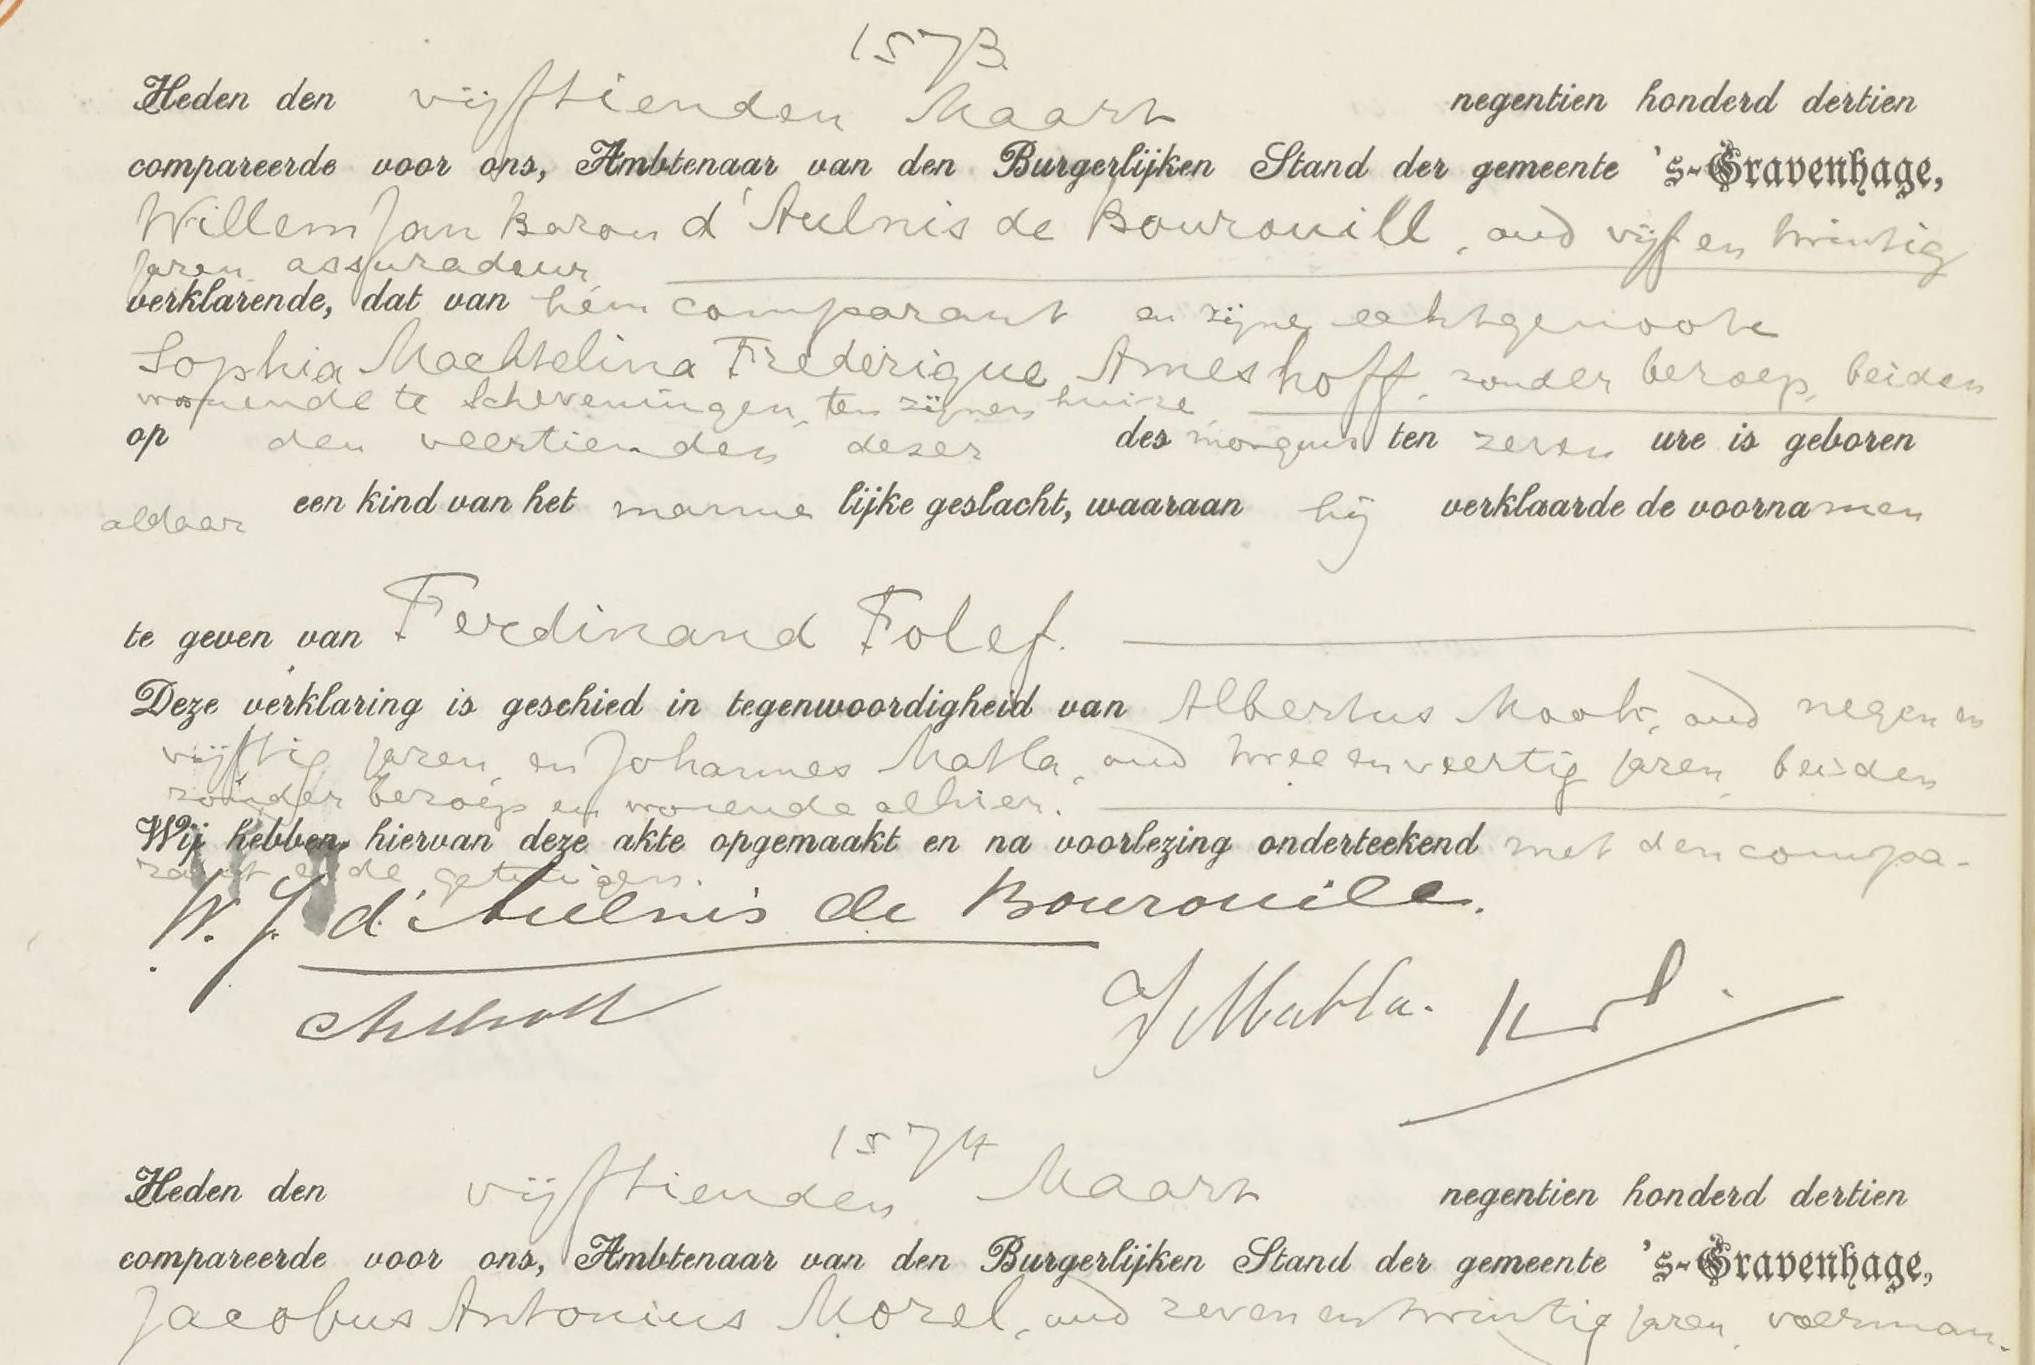 1573
Heden den vijftienden Maart negentien honderd dertien
compareerde voor ons, Ambtenaar van den Burgerlijken Stand der gemeente 's-Gravenhage,
Willem Jan Baron d'Aulnis de Bourouill, oud vijf en twintig
jaren, assuradeur
verklarende, dat van hem comparant en zijne echtgenoote
Sophia Machtelina Fréderique Ameshoff, zonder beroep, beiden
wonende te Scheveningen, ten zijnen huize
op den veertienden dezer des morgens ten zeven ure is geboren
aldaar een kind van het mannelijke geslacht, waaraan hij verklaarde de voornamen
te geven van Ferdinand Folef.
Deze verklaring is geschied in tegenwoordigheid van Albertus Mook, oud negen en
vijftig jaren, en Johannes Matla, oud twee en veertig jaren, beiden
zonder beroep en wonende alhier.
Wij hebben hiervan deze akte opgemaakt en na voorlezing onderteekend met den compa-
rant en de getuigen.
W. J. d'Aulnis de Bourouill.
J Matla.
1574
Heden den vijftienden Maart negentien honderd dertien
compareerde voor ons, Ambtenaar van den Burgerlijken Stand der gemeente 's-Gravenhage,
Jacobus Antonius Morel, oud zeven en twintig jaren, voerman.